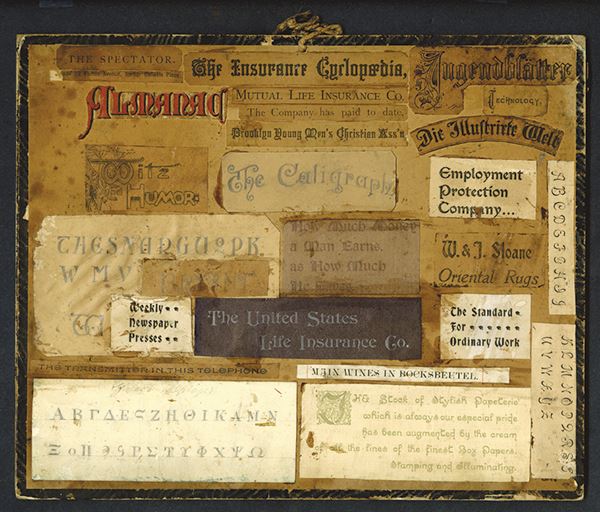 THE SPECTATOR.
The Insurance Cyclopædia,
Jugendblätter
ALMANAC
MUTUAL LIFE INSURANCE CO.
The Company has paid to date,
Brooklyn Young Men's Christian Ass'n
TECHNOLOGY,
Die Illustrirte Welt
Witz
HUMOR.
The Caligraph
Employment
Protection
Company...
ABCDSFGHIJ
How Much Money
a Man Earns,
as How Much
He Saves
W. & J. Sloane
Oriental Rugs
W M V
Weekly
Newspaper
Presses
The United States
Life Insurance Co.
The Standard
For
Ordinary Work
THE TRANSMITTER IN THIS TELEPHONE
MAIN WINES IN BOCKSBEUTEL.
ΑΒΓΔΕϚΖΗΘΙΚΛΜΝ
The Stock of Stylish Papeterie
which is always our especial pride
has been augmented by the cream
of all the lines of the finest Box Papers.
Stamping and Illuminating.